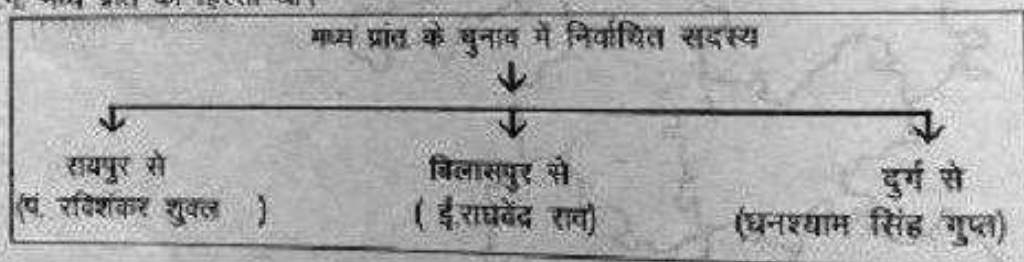 मध्य प्रांत का हिस्सा था।
मध्य प्रांत के चुनाव में निर्वाचित सदस्य
रायपुर से
(पं. रविशंकर शुक्ल )
बिलासपुर से
( ई.राघवेंद्र राव)
दुर्ग से
(घनश्याम सिंह गुप्त)